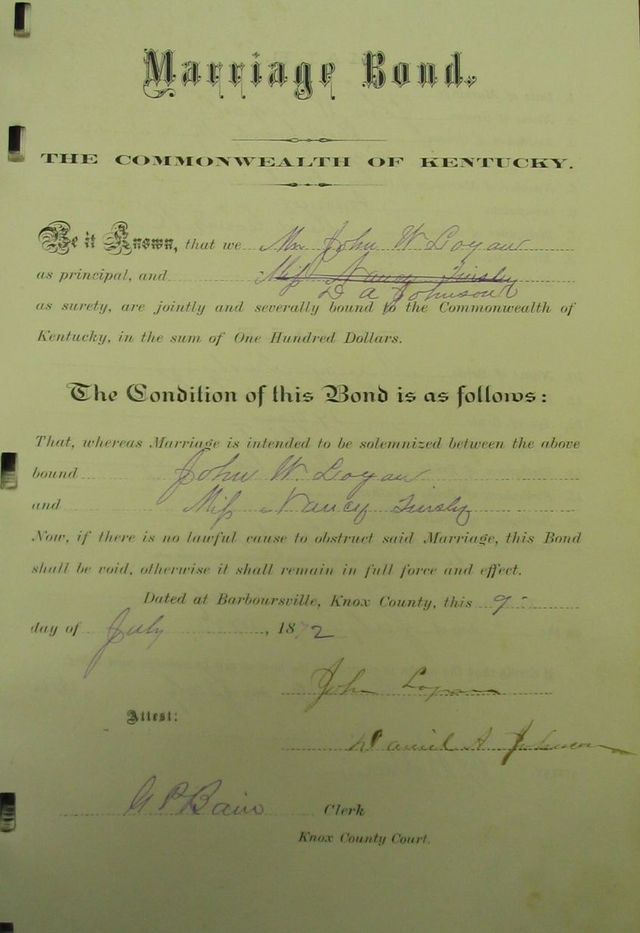 Marriage Bond.
THE COMMONWEALTH OF KENTUCKY.
Be it Known, that we Mr John W Logan
as principal, and Miss Nancy Tinsley
D A Johnson
as surety, are jointly and severally bound to the Commonwealth of
Kentucky, in the sum of One Hundred Dollars.
The Condition of this Bond is as follows:
That, whereas Marriage is intended to be solemnized between the above
bound John W. Logan
and Miss Nancy Tinsley
Now, if there is no lawful cause to obstruct said Marriage, this Bond
shall be void, otherwise it shall remain in full force and effect.
Dated at Barboursville, Knox County, this 9
day of July, 1872
John Logan
Attest:
Daniel A Johnson
G P Bain Clerk
Knox County Court.